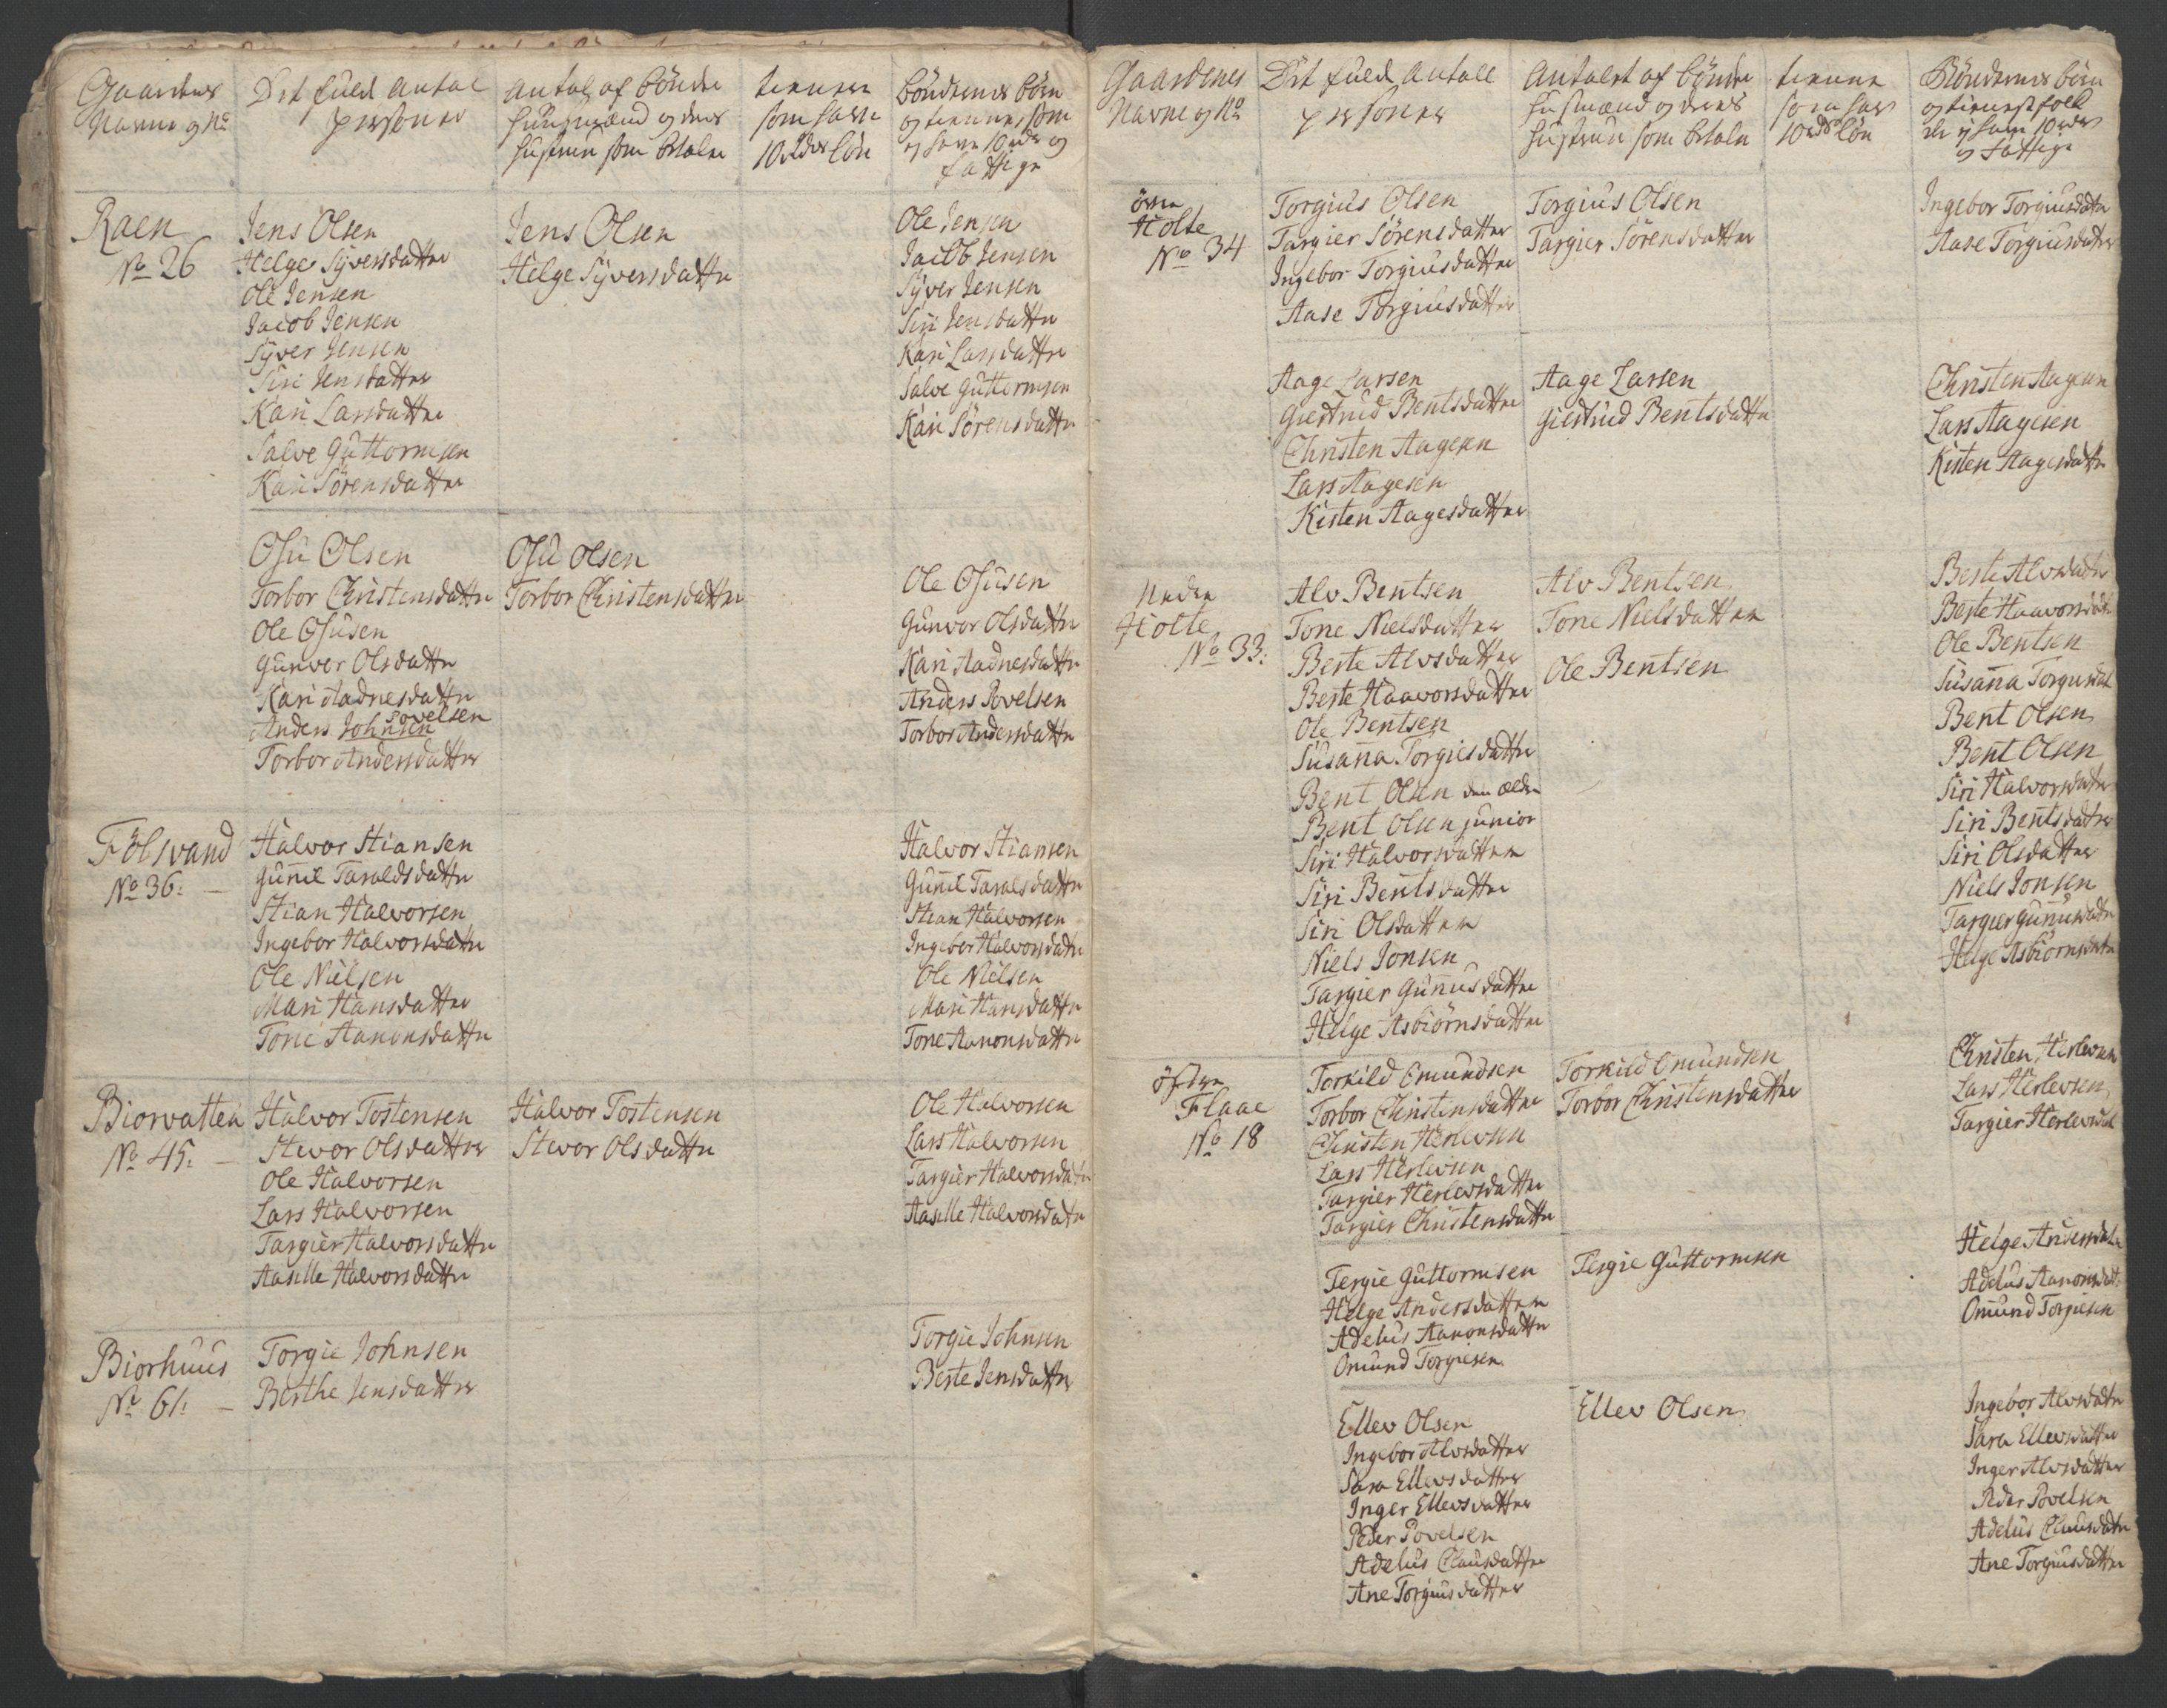 Gaardenes
Navne og No
Det fuld antal
personer
Antal af bönder
huusmænd og deres
hustruer som betaler
tienner
som have
10 rdlr lön
böndernes börn
og tienner, som
ej have 10 rdr og
fattige
Raen
No 26
Jens Olsen
Helge Syversdatter
Ole Jensen
Jacob Jensen
Syver Jensen
Siri Jensdatter
Kari Larsdatter
Salve Guttormsen
Kari Sörensdatter
Jens Olsen
Helge Syversdatter
Ole Jensen
Jacob Jensen
Syver Jensen
Siri Jensdatter
Kari Larsdatter
Salve Guttormsen
Kari Sörensdatter
Osu Olsen
Torbor Christensdatter
Ole Osusen
Gunvor Olsdatter
Kari Aadnesdatter
Povelsen
Anders Johnsen
Torbor Andersdatter
Osu Olsen
Torbor Christensdatter
Ole Osusen
Gunvor Olsdatter
Kari Aadnesdatter
Anders Povelsen
Torbor Andersdatter
Fölsvand
No 36:
Halvor Stiansen
Gunnil Taraldsdatter
Stian Halvorsen
Ingebor Halvorsdatter
Ole Nielsen
Mari Hansdatter
Tone Aanonsdatter
Halvor Stiansen
Gunnil Taralsdatter
Stian Halvorsen
Ingebor Halvorsdatter
Ole Nielsen
Mari Hansdatter
Tone Aanonsdatter
Biorvatten
No 45:
Halvor Tostensen
Stevor Olsdatter
Ole Halvorsen
Lars Halvorsen
Targier Halvorsdatter
Aaselle Halvorsdatter
Halvor Tostensen
Stevor Olsdatter
Ole Halvorsen
Lars Halvorsen
Targier Halvorsdatter
Aaselle Halvorsdatter
Biorhuus
No 61:
Torgie Johnsen
Berthe Jensdatter
Torgie Johnsen
Berte Jensdatter
Gaardenes
Navne og No
Det fuld Antall
personer
Antalet af bönder
husmænd og deres
hustruer som betaler
tienner
som have
10 rdr lön
Böndernes börn
og tienestfolk
de ej have 10 rdr
og fattige
övre
Holte
No 34
Torgius Olsen
Targier Sörensdatter
Ingebor Torgiusdatter
Aase Torgiusdatter
Torgius Olsen
Targier Sörensdatter
Ingebor Torgiusdatter
Aase Torgiusdatter
Aage Larsen
Giertrud Bentsdatter
Christen Aagesen
Lars Aagesen
Kisten Aagesdatter
Aage Larsen
Giertrud Bentsdatter
Christen Aagesen
Lars Aagesen
Kisten Aagesdatter
Neder
Holte
No 33:
Alv Bentsen
Tone Nielsdatter
Berte Alvsdatter
Berte Haavorsdatter
Ole Bentsen
Susanna Torgiesdatter
Bent Olsen den ælder
Bent Olsen junior
Siri Halvorsdatter
Siri Bentsdatter
Siri Olsdatter
Niels Jonsen
Targier Gunnusdatter
Helge Asbiörnsdatter
Alv Bentsen
Tone Nielsdatter
Ole Bentsen
Berte Alvsdatter
Berte Haavorsdatter
Ole Bentsen
Susanna Torgusdat
Bent Olsen
Bent Olsen
Siri Halvorsdatter
Siri Bentsdatter
Siri Olsdatter
Niels Jonsen
Targier Gunnusdatter
Helge Asbiörnsdatter
östre
Flaae
No 18
Torkild Omundsen
Torbor Christensdatter
Christen Herlevsen
Lars Herlevsen
Targier Herlevsdatter
Targier Christensdatter
Torkild Omundsen
Torbor Christensdatter
Christen Herlevsen
Lars Herlevsen
Targier Herlevsdat
Tergie Guttormsen
Helge Andersdatter
Adelus Aanonsdatter
Omund Torgiesen
Tergie Guttormsen
Helge Andersdatter
Adelus Aanonsdat:
Omund Torgiesen
Ellev Olsen
Ingebor Alvsdatter
Sara Ellevsdatter
Inger Ellevsdatter
Peder Povelsen
Adelus Clausdatter
Ane Torgiusdatter
Ellev Olsen
Ingebor Alvsdatter
Sara Ellevsdatter
Inger Alvsdatter
Peder Povelsen
Adelus Clausdatter
Ane Torgiusdatter